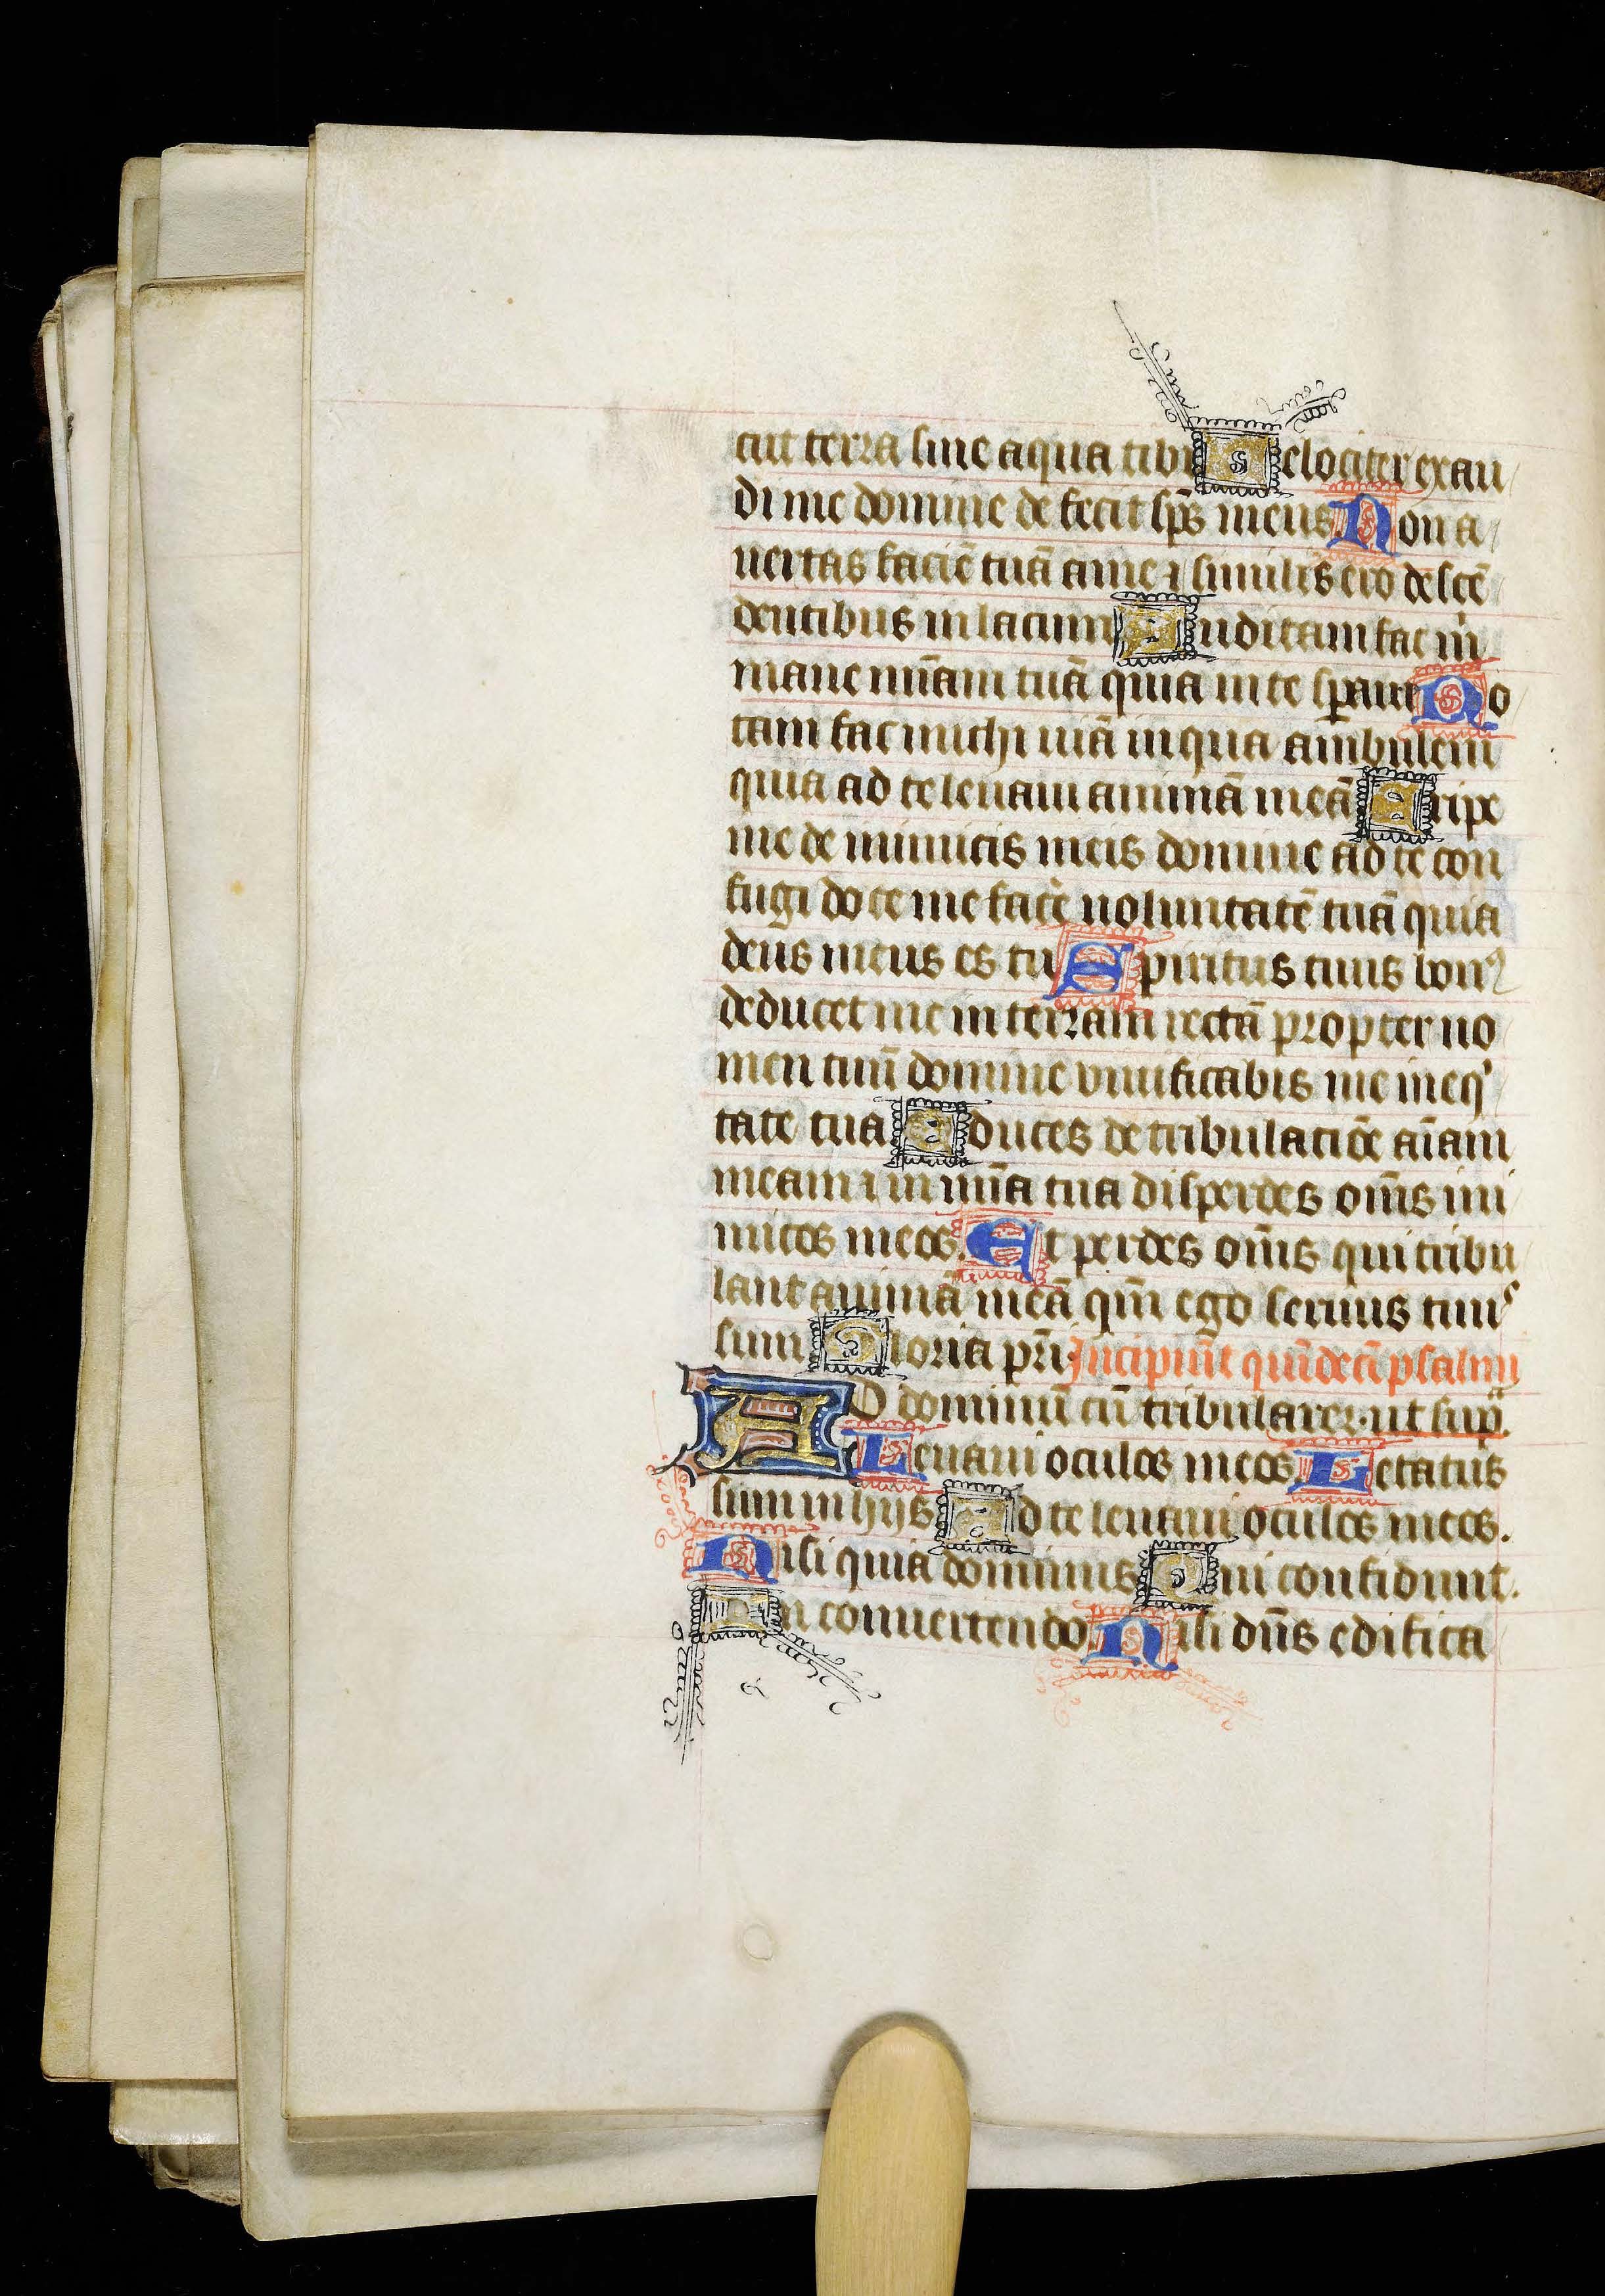 cut terra sine aqua tibi Velociter exau
di me domine defecit sp̄s meus Non a
uertas faciē tuā a me ⁊ similis ero descē
dentibus in lacum Auditam fac m̄
mane mīam tuā quia in te sꝑaui No
tam fac michi uiā in qua ambulem
quia ad te leuaui animā meā Eripe
me de inimicis meis domine ad te con
fugi doce me facē uoluntatē tuā quia
deus meus es tu Spiritus tuus bonꝰ
deducet me in terram rectā propter no
men tuū domine viuificabis me in eqⁱ
tate tua Educes de tribulacōe aīam
meam ⁊ in mīa tua disperdes om̄s ini
micos meos. Et perdes om̄s qui tribu
lant animā meā qm̄ ego seruus tuus
sum Gloria pr̄i. Incipiūt quīdecī psalmi
AD dominū cū tribularer. ut supᵃ.
Leuaui oculos meos. Letatus
sum in hijs Ad te leuaui oculos meos.
Nisi quia dominus Qui confidunt.
In conuertendo Nisi dūs edifica